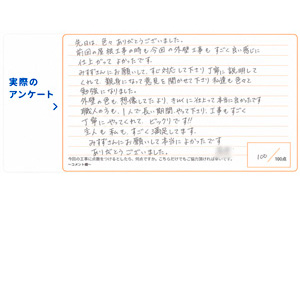 実際の
アンケート
先日は、色々ありがとうございました。
前回の屋根工事の時も今回の外壁工事も すごく良い感じに
仕上がってよかったです。
みすずさんにお願いして、すぐ対応して下さり丁寧に説明して
くれて 親身になって意見を聞かせて下さり私達も色々と
勉強になりました。
外壁の色も想像してたより、きれいに仕上って本当に良かったです
職人の方も、1人で長い期間やって下さり、工事もすごく
丁寧にやってくれて、ビックリです!!
主人も私も、すごく満足してます。
みすずさんにお願いして本当によかったです
ありがとうございました。
今回の工事に点数をつけるとしたら、何点ですか。こちらだけでもご協力頂ければ幸いです。
~コメント欄~
100/100点